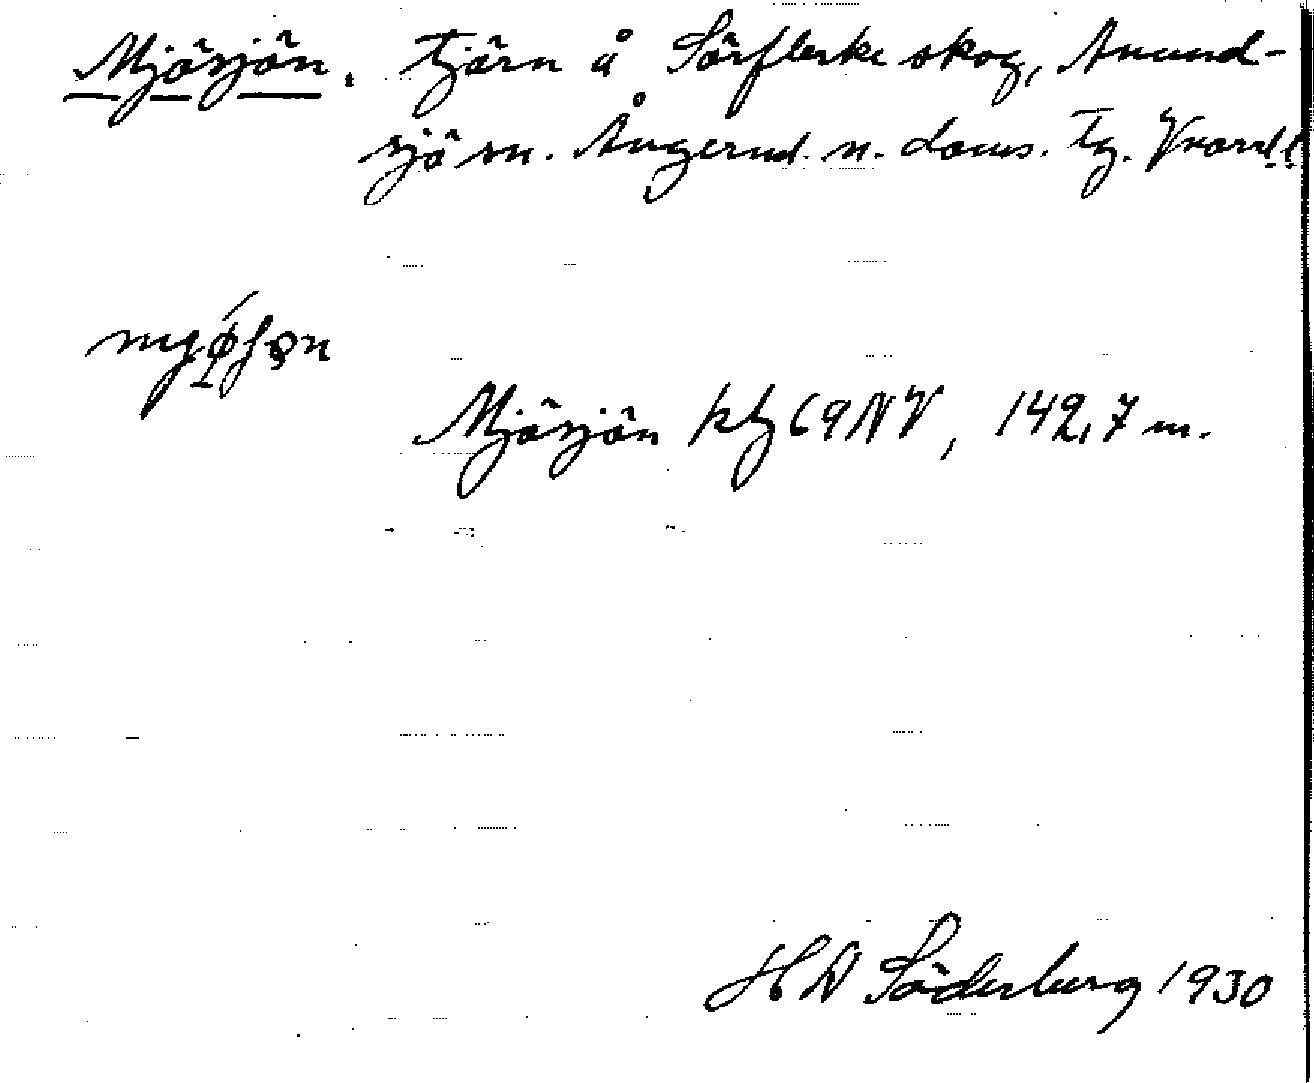 Mjösjön. tjärn å Sörflärke skog, Anund-
sjö sn. Ångerml. n. doms. tg. V
Mjösjön kbl 69NV, 142,7 m.
HD Söderberg 1930